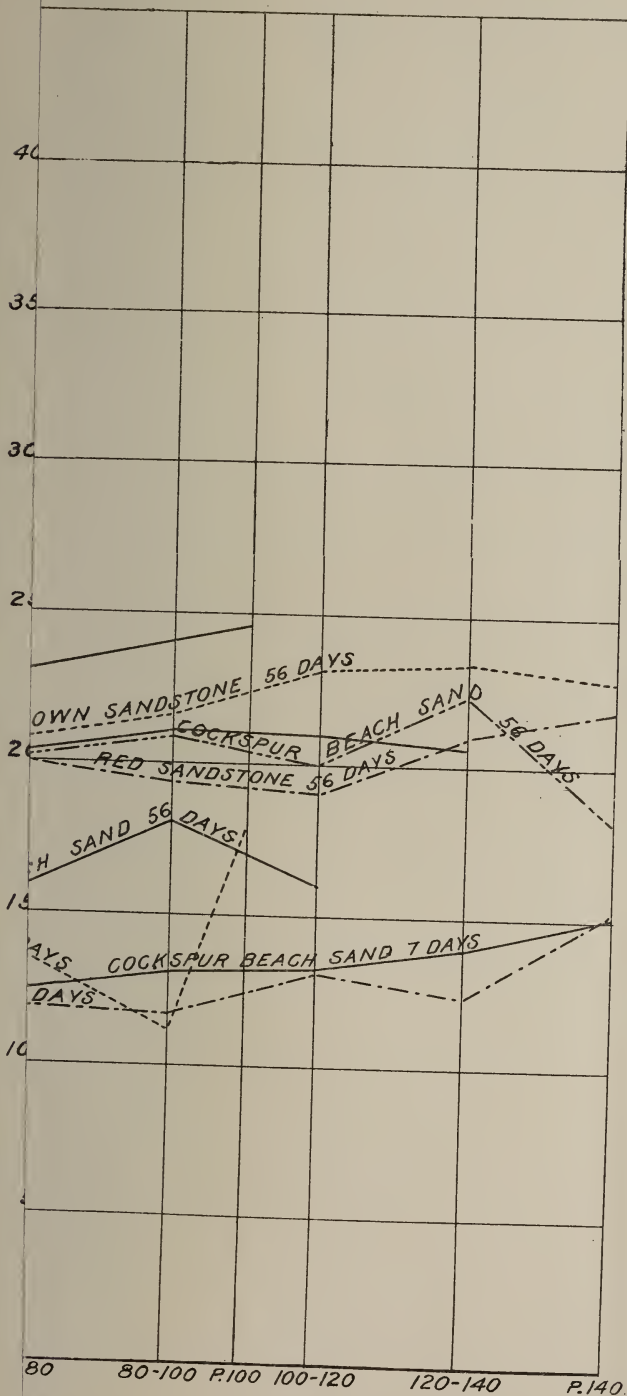 40
35
30
25
OWN SANDSTONE 56 DAYS
COCKSPUR BEACH SAND 56 DAYS
20
RED SANDSTONE 56 DAYS
H SAND 56 DAYS
15
AYS
COCKSPUR BEACH SAND 7 DAYS
DAYS
10
80 80-100 P.100 100-120 120-140 P.140